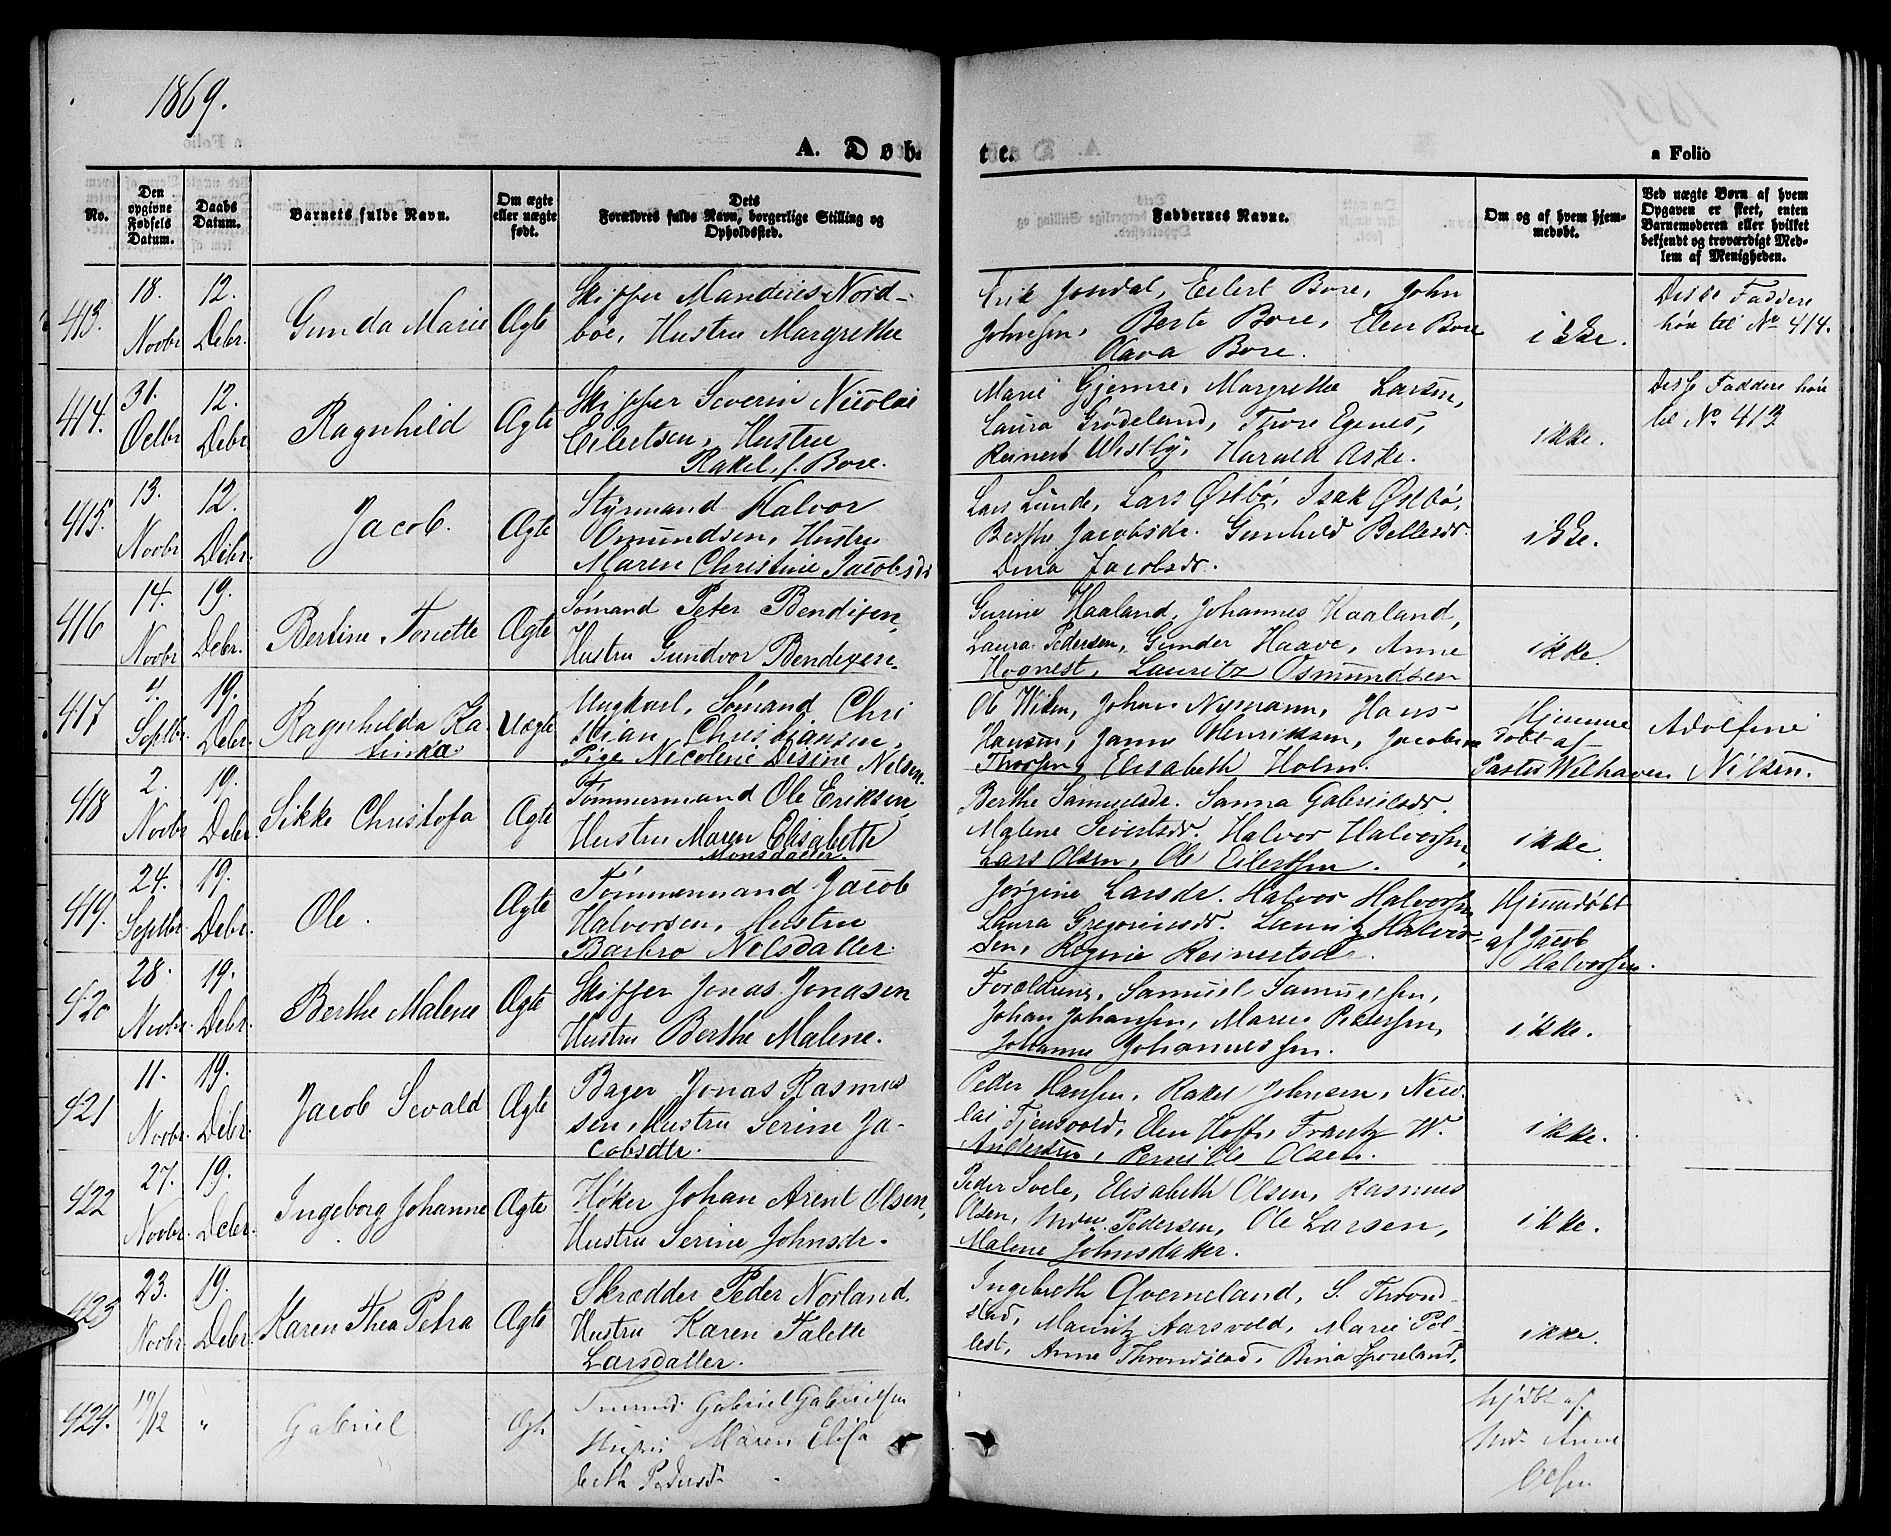 1869.
A. Døb
te.
a Folio
No.
Den opgivne Fødsels Datum.
Daabs Datum.
Barnets fulde Navn.
Om ægte eller uægte født.
Dets Forældres fulde Navn, borgerlige Stilling og Opholdssted.
Faddernes Navne.
Om og af hvem hjemmedøbt.
Ved uægte Børn af hvem Opgaven er skeet, enten Barnemoderen eller hvilket bekjendt og troværdigt Medlem af Menigheden.
413. 18. Novbr 12. Debr. Gunda Marie Ægte
Skipper Mandius Nord-
boe, Hustru Margrethe
Erik Josdal, Eilert Bore, John
Johnsen, Berte Bore, Elen Bore
Olava Bore.
ikke.
Disse Faddere
hør til No 414.
414. 31. Octbr 12. Debr Ragnhild Ægte
Skipper Severin Nicolai
Eilertsen, Hustru
Rakel, f. Bore.
Marie Gjemre, Margrethe Larsen,
Laura Grødeland, Thore Egenes,
Reinert Westly, Harald Aske.
ikke.
Disse Faddere hør
til No 413
415. 13. Novbr 12. Debr. Jacob. Ægte
Styrmand Halvor
Omundsen, Hustru
Maren Christine Jacobsdr
Lars Lunde, Lars Østbø, Isak Østbø,
Berthe Jacobsdr. Gunhild Pellesdr.
Dina Jacobsdr.
ikke.
416 14. Novbr 19. Debr. Bertine Tonette Ægte
Sømand Peter Bendixen,
Hustru Gundvor Bendixen.
Gurine Haaland, Johannes Haaland,
Laura Pedersen, Gunder Haave, Anne
Hognest, Lauritz Osmundsen
ikke.
417 4. Septbr 19. Debr. Ragnhilda Ka-
tinka Uægte
Ungkarl, Sømand Chri
stian Christiansen,
Pige Nicolene Disine Nilsen.
Ob Wiken, Johan Nymann, Hans
Hansen, Janne Henriksen, Jacobine
Thorsen, Elisabeth Holm.
Hjemme
døbt af
Pastor Welhaven
Adolfine
Nilsen.
418 2. Novbr 19. Debr. Sikke Christofa Ægte
Tømmermand Ole Eriksen,
Hustru Maren Elisabeth
Monsdatter.
Berthe Samuelsdr. Sanna Gabrielsdr.
Malene Sivertsdr. Halvor Halvorsen,
Lars Olsen, Ole Eilertsen.
ikke.
419. 24. Septbr. 19. Debr. Ole. Ægte
Tømmermand Jacob
Halvorsen, Hustru
Barbro Nilsdatter.
Jørgine Larsdr. Halvor Halvorsen
Laura Gregoriusdr. Lauritz Halvor-
sen, Rogine Reinertsdr.
Hjemdøbt
af Jacob
Halvorsen.
420 28. Novbr. 19. Debr. Berthe Malene Ægte
Skipper Jonas Jonasen
Hustru Berthe Malene.
Forældrene, Samuel Samuelsen,
Johan Johansen, Maren Petersen,
Johanne Johannessen.
ikke.
421 11. Novbr. 19. Debr. Jacob Sevald Ægte
Bager Jonas Rasmus
sen, Hustru Serine Ja-
cobsdtr.
Peder Hansen, Rakel Johnsen, Nico-
lai Tjensvold, Elen Hoff, Frantz W.
Andersen, Pernille Olsen.
ikke.
422 27. Novbr. 19. Debr. Ingeborg Johanne Ægte
Høker Johan Arent Olsen,
Hustru Serine Johnsdr.
Peder Svele, Elisabeth Olsen, Rasmus
Olsen, Pedersen, Ole Larsen,
Malene Johnsdatter.
ikke.
423 23. Novbr. 19. Debr. Karen Thea Petra Ægte
Skrædder Peder Norland.
Hustru Karen Talette
Larsdatter.
Ingebreth Qverneland, S. Thrond-
stad, Mauritz Aarsvold, Marie Pol-
lest, Anne Throndstad, Bina Sporeland.
ikke.
424. 19/12 " Gabriel Ægt.
Gabriel Gabrielsen
Hustru Maren Elisa
beth Pedersdr
Hjdbt af
Anne
Olsen